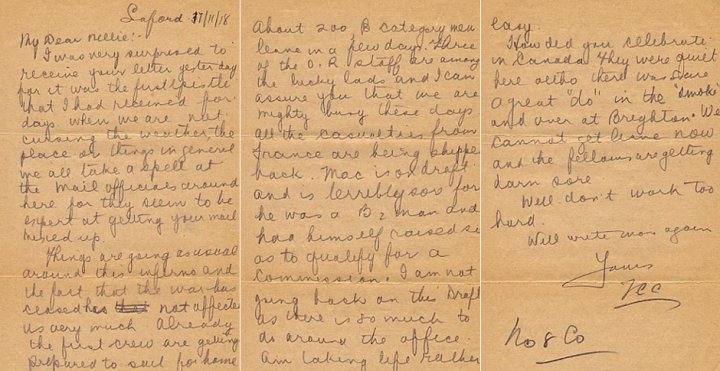 Seaford 17/11/18
My Dear Nellie:-
I was very surprised to
receive your letter yesterday
for it was the first epistle
that I had received for
days. When we are not
cursing the weather, the
place or things in general
we all take a spell at
the mail officials around
here for they seem to be
expert at getting your mail
mixed up.
Things are going as usual
around this inferno and
the fact that the war has
ceased has not affected
us very much. Already
the first crew are getting
prepared to sail for home
About 200 B category men
leave in a few days. Three
of the O.R. staff are among
the lucky lads and I can
assure you that we are
mighty busy these days
all the casualties from
France are being shipped
back. Mac is on draft
and is terribly sore for
he was a B2 man and
had himself raised so
as to qualify for a
commission. I am not
going back on this Draft
as there is so much to
do around the office.
Am taking life rather
easy.
How did you celebrate
in Canada. They were quiet
here altho there was sure
a great "do" in the "smoke"
and over at Brighton. We
cannot get leave now
and the fellows are getting
darn sore.
Well don't work too
hard.
Will write more again
Yours
No 8 Co